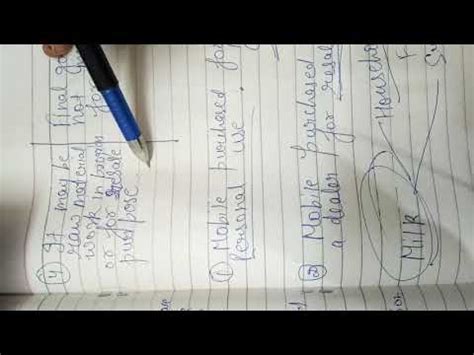 (4) It may be
raw material
work in progress
or for resale
purpose
Final go
not
for
① Mobile purchased fo
Personal use
② Mobile purchased
a dealer for resal
Milk
Househo
F
Su